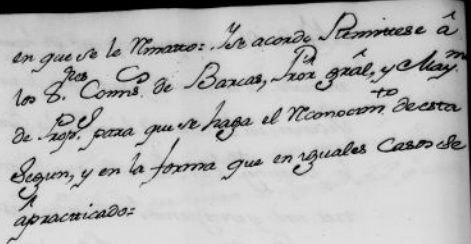 en que se le Nmato= Y se acordo Remitiese â
los S.res Coms. de Barcas, Pror grâl, y May.m
de Prop.s para que se haga el Nconocim.to de esta
Segun, y en la forma que en yguales Casos se
â practicado=